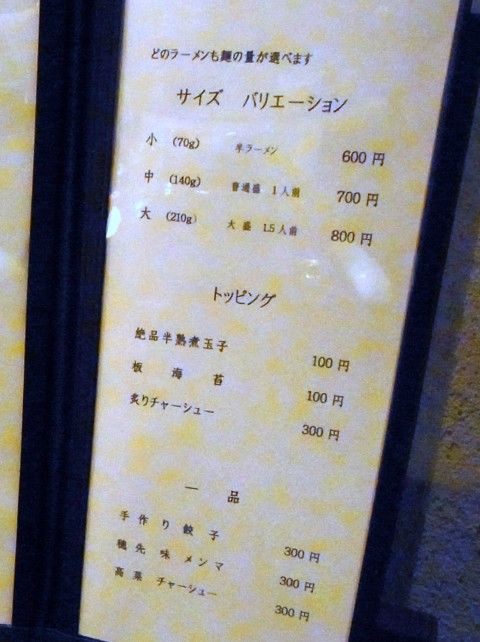 どのラーメンも麺の量が選べます
サイズ バリエーション
小 (70g) 半ラーメン 600 円
中 (140g) 普通盛 1人前 700 円
大 (210g) 大盛 1.5人前 800 円
トッピング
絶品半熟煮玉子 100 円
板海苔 100 円
炙りチャーシュー 300 円
一品
手作り餃子 300 円
穂先味メンマ 300 円
高菜チャーシュー 300 円